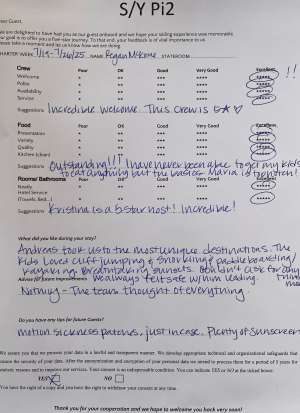 S/Y Pi2
Dear Guest,
We are delighted to have had you as our guest onboard and we hope your sailing experience was memorable.
Our goal is to offer you a five-star journey. To that end, your feedback is of vital importance to us.
Please take a moment and let us know how we are doing.
CHARTER WEEK 7/19-7/26/25 NAME Regan McKone STATEROOM
Crew Poor OK Good Very Good Excellent !!
Welcome * ** *** **** *****
Polite * ** *** **** *****
Availability * ** *** **** *****
Service * ** *** **** *****
Suggestions Incredible welcome. This crew is 5★ ♡
Food Poor OK Good Very Good Excellent
Presentation * ** *** **** *****
Variety * ** *** **** *****
Quality * ** *** **** *****
Kitchen (chart) * ** *** **** *****
Suggestions Outstanding!!! I have never been able to get my kids
to eat anything but the basics. Maria is top ten!
Rooms/ Bathrooms Poor OK Good Very Good Excellent
Neatly * ** *** **** *****
Hotel Service * ** *** **** *****
(Towels, Bed...) * ** *** **** *****
Suggestions Kristina is a 5 star host! Incredible!
What did you like during your stay?
Andreas took us to the most unique destinations. The
kids loved cliff jumping & snorkeling/ paddle boarding/
kayaking. Breathtaking sunsets. Couldn't ask for any
thing more
We always felt safe w/ him leading.
Nothing - The team thought of everything.
Do you have any tips for future Guests?
motion sickness patches, just incase. Plenty of Sunscreen
We assure you that we process your data in a lawful and transparent manner. We develop appropriate technical and organizational safeguards that
ensure the security of your data. After the anonymization and encryption of your personal data we intend to process them for a period of 5 years for
statistic reasons and to improve our services. Your consent is an indispensable condition. You can indicate YES or NO at the ticked boxes:
YES NO
You have the right of a copy and you have the right to withdraw your consent at any time.
Thank you for your cooperation and we hope to welcome you back very soon!